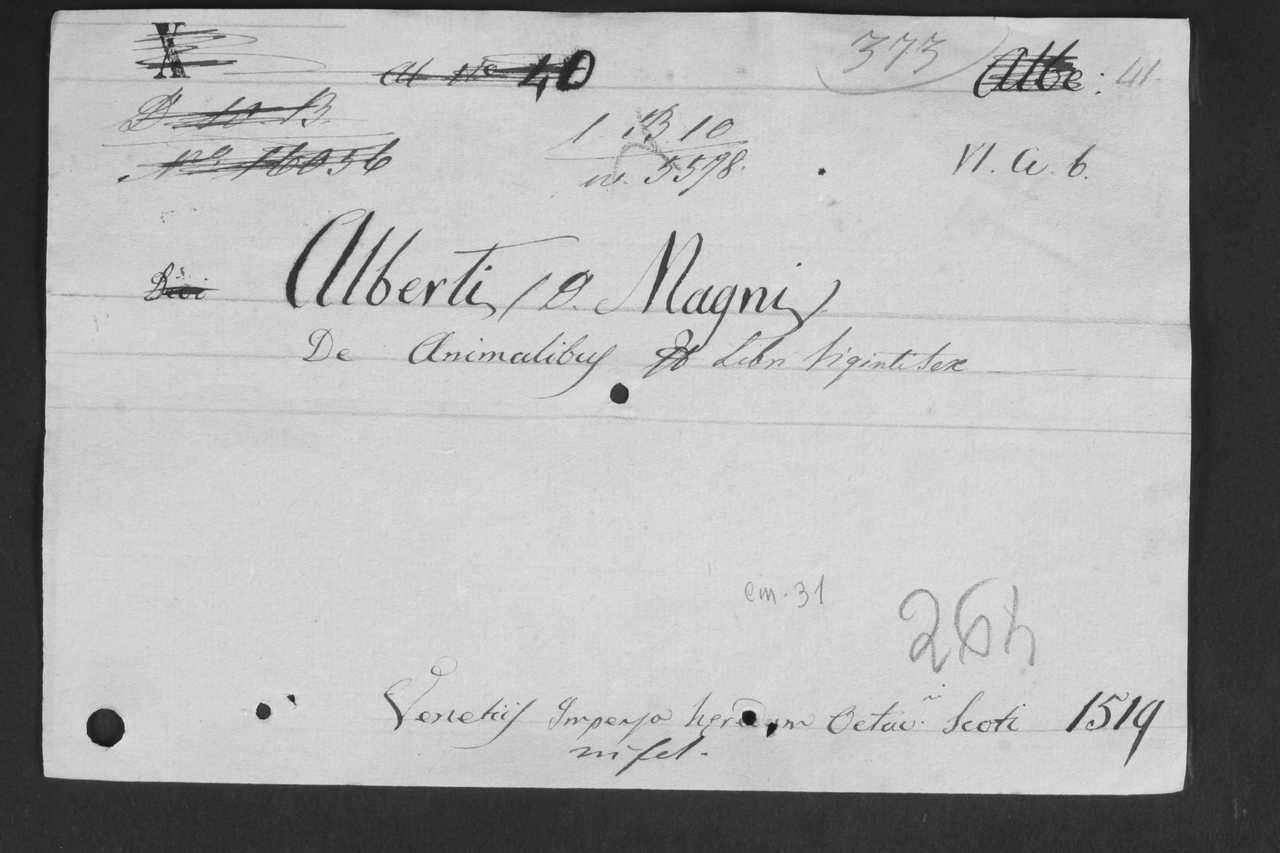 X
al No 40
373
Albe: 41
D 10 B
1 B 10
No 16056
5578.
VI. a. 6.
Divi Alberti (D. Magni)
De Animalibus Libri viginti sex
cm. 31
264
Venetiis Impensa heredum Octav. Scoti 1519
in fol.